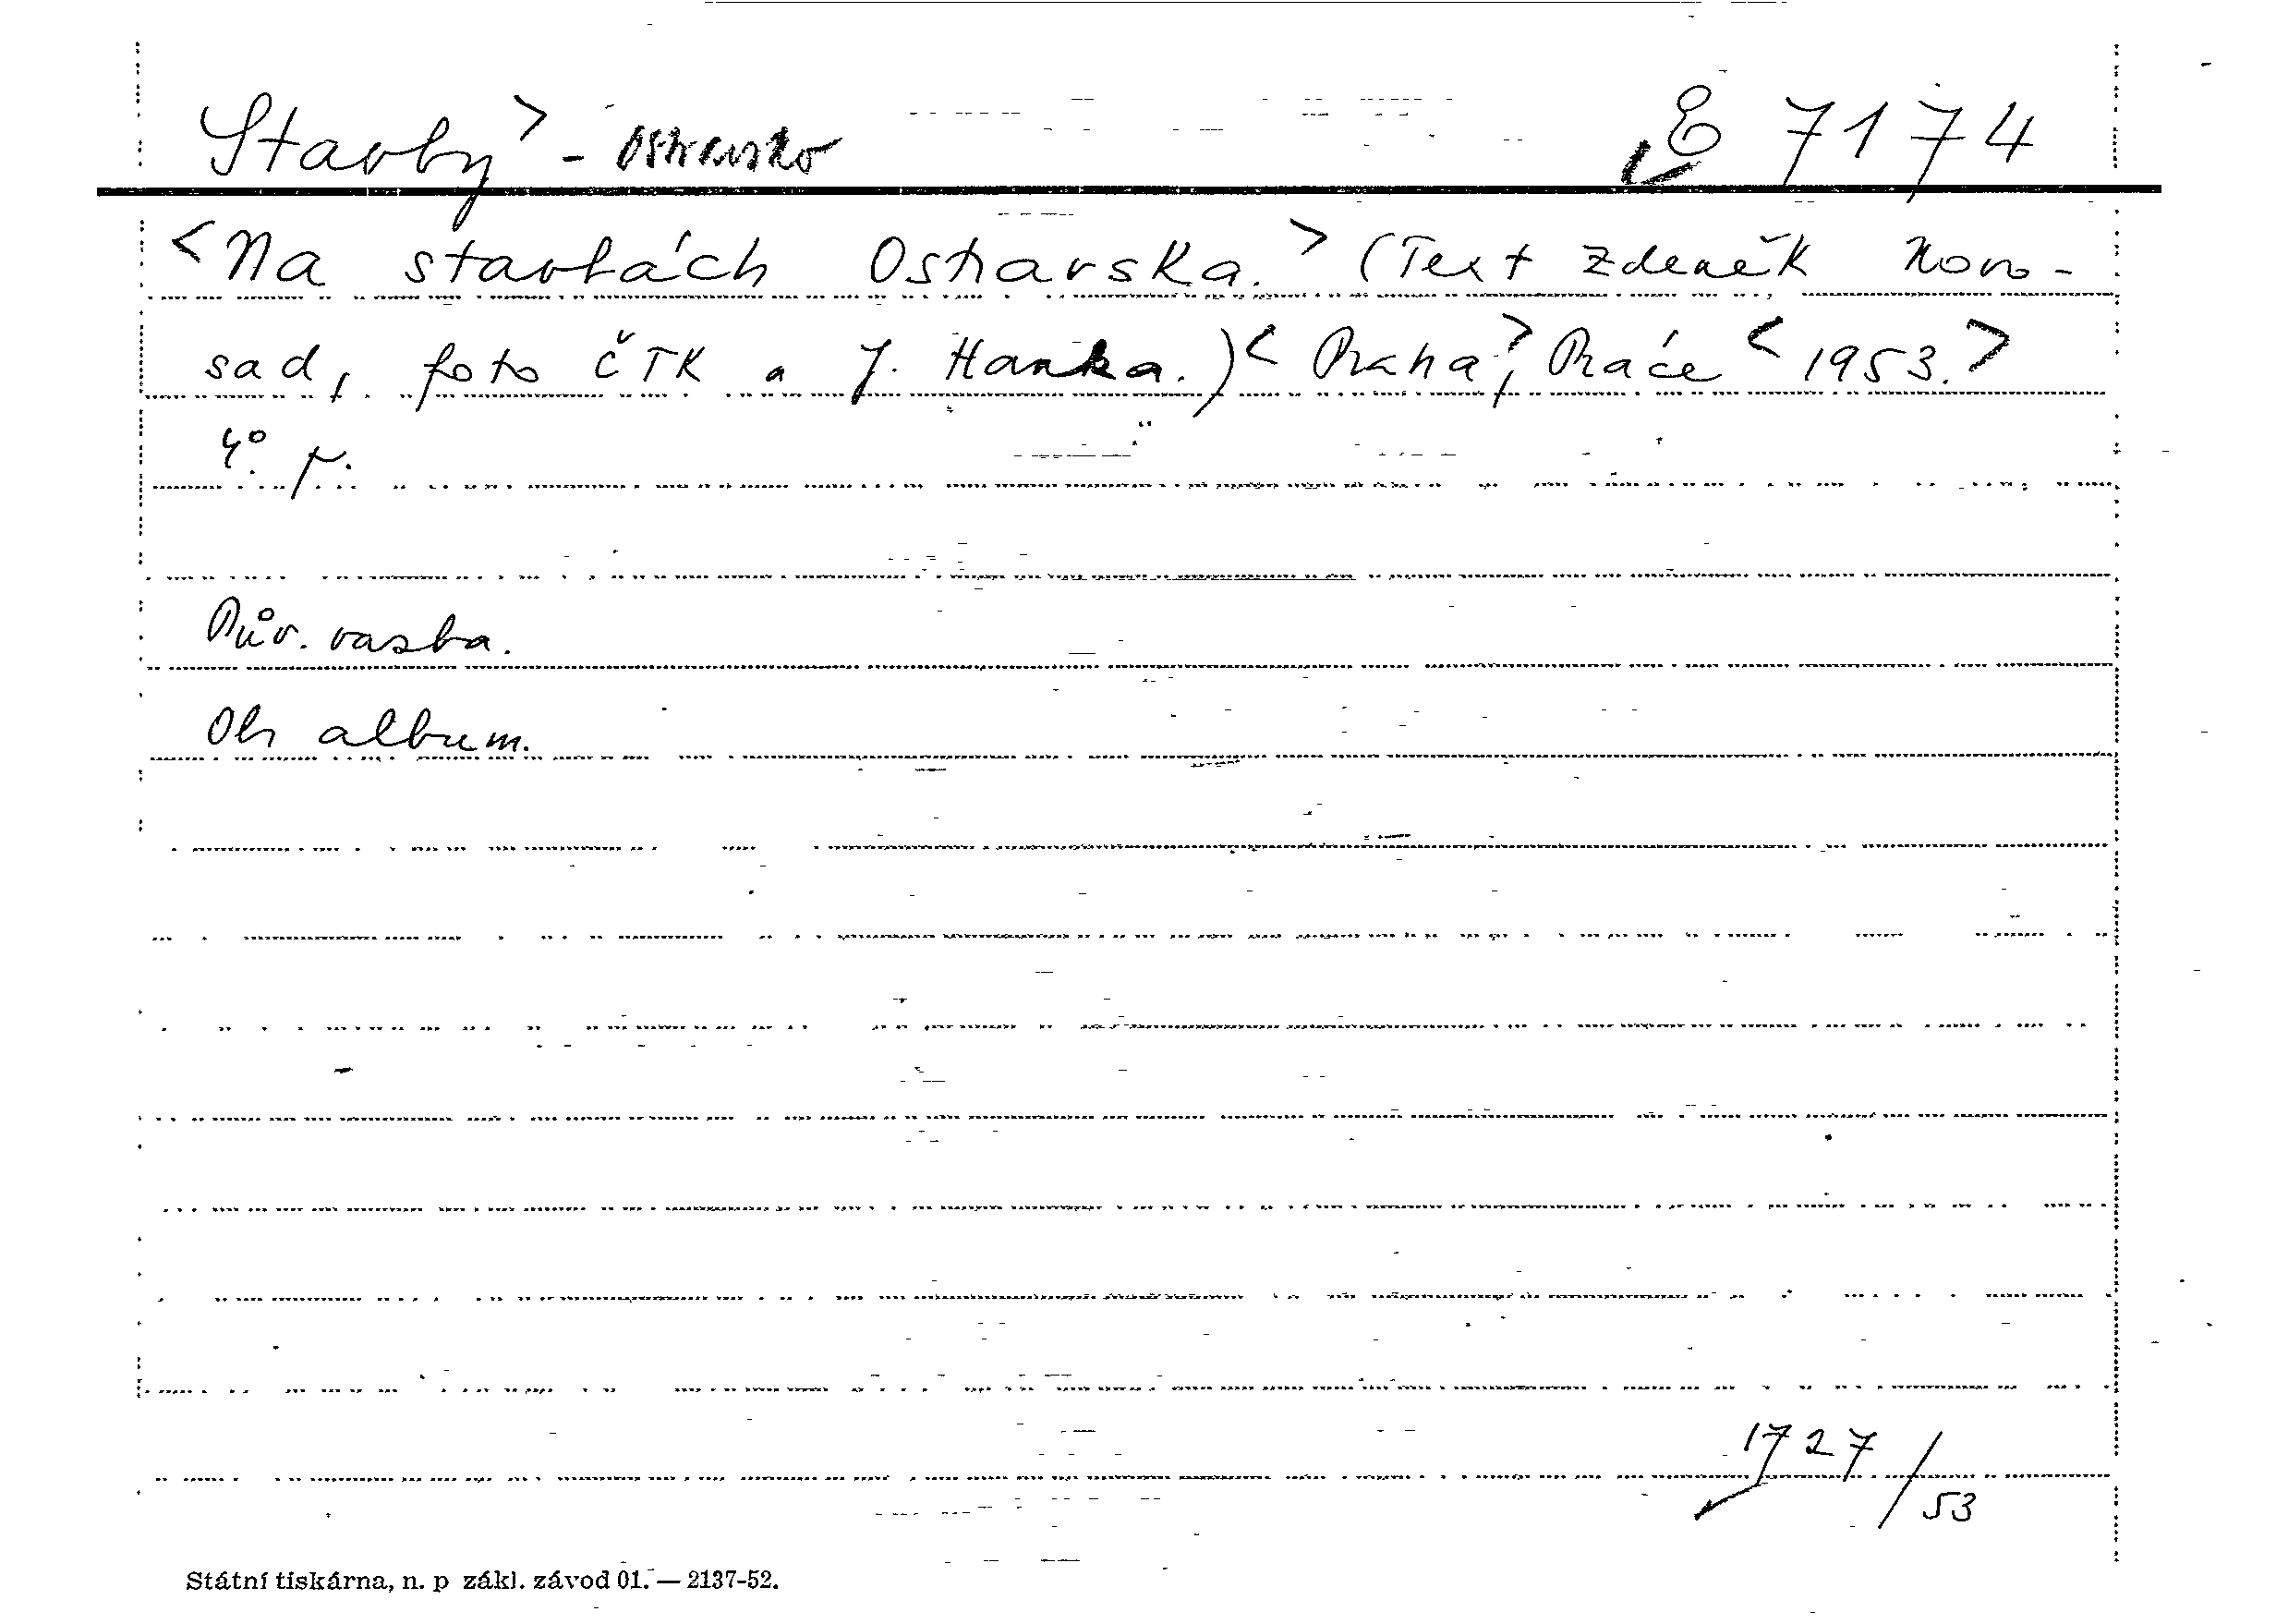 Stavby> - Ostravsko E 7174
<Na stavbách Ostravska.> (Text Zdeněk Novo-
sad, foto ČTK a J. Hanka.)< Praha>, Práce <1953.>
4°. p.
Pův. vazba.
Obr album.
1727/53
Státní tiskárna, n. p zákl. závod 01. — 2137-52.